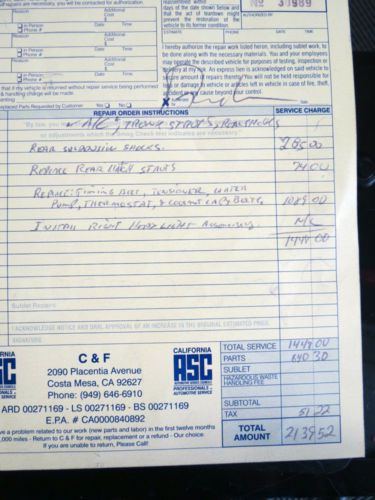 d repairs are necessary, you will be contacted for authorization.
reassembled within
days of the date shown above and
that the act of teardown might
prevent the restoration of
the vehicle to its former condition.
Additional Cost
AUTHORIZED BY
In Person
Phone #
Reason
Date
Time
ESTIMATE
PHONE
DATE
I hereby authorize the repair work listed heron, including sublet work, to be
done along with the necessary materials. You and your employees
may operate the above described vehicle for purposes of testing, inspection or
delivery at my risk. An express lien is acknowledged on said vehicle to
secure amount of repairs thereto. You will not be held responsible
for loss or damage to vehicle or articles left in vehicle in case of fire, theft,
accident or any cause beyond your control.
that if my vehicle is returned without repair service being performed
& handling charge will be made.
Replaced Parts Requested by Customer Yes No
X
REPAIR ORDER INSTRUCTIONS
SERVICE CHARGE
REAR SUSPENSION SHOCKS. 285.00
REPLACE REAR HATCH STRUTS 74.00
REPLACE TIMING BELT, TENSIONER, WATER
PUMP, THERMOSTAT, & COOLANT CAP, BELTS. 1089.00
INSTALL RIGHT HEADLIGHT ASSEMBLY. N/C
1448.00
Sublet Repairs:
I ACKNOWLEDGE NOTICE AND ORAL APPROVAL OF AN INCREASE IN THE ORIGINAL ESTIMATED PRICE.
SIGNATURE
C & F
2090 Placentia Avenue
Costa Mesa, CA 92627
Phone: (949) 646-6910
CALIFORNIA
ASC
AUTOMOTIVE SERVICE COUNCILS
PROFESSIONALS
in
AUTOMOTIVE SERVICE
ARD 00271169 - LS 00271169 - BS 00271169
E.P.A. # CA0000840892
ve a problem related to our work (new parts and labor) in the first twelve months
,000 miles - Return to C & F for repair, replacement or a refund - Our choice
If you are unable to return, Please Call!
TOTAL SERVICE 1448.00
PARTS 640 30
SUBLET
HAZARDOUS WASTE
HANDLING FEE
SUBTOTAL
TAX 51.22
TOTAL
AMOUNT 2139.52